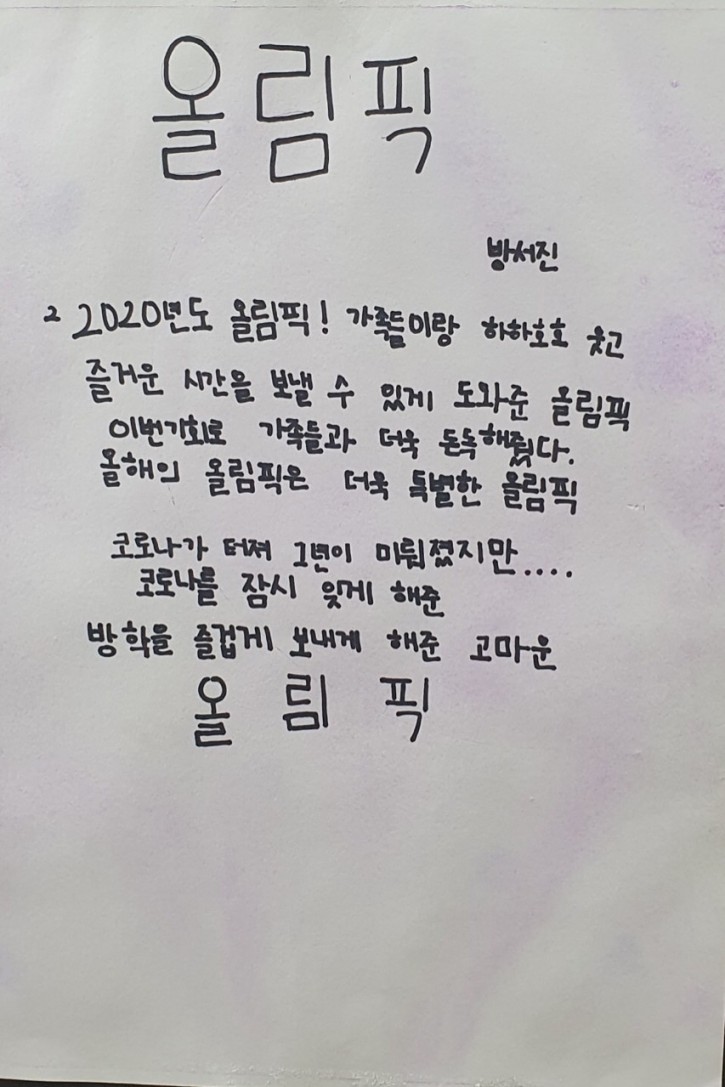 올림픽
방서진
2 2020년도 올림픽! 가족들이랑 하하호호 웃고
즐거운 시간을 보낼 수 있게 도와준 올림픽
이번기회로 가족들과 더욱 돈독해줬다.
올해의 올림픽은 더욱 특별한 올림픽
코로나가 터져 1년이 미뤄졌지만....
코로나를 잠시 잊게 해준
방학을 즐겁게 보내게 해준 고마운
올림픽